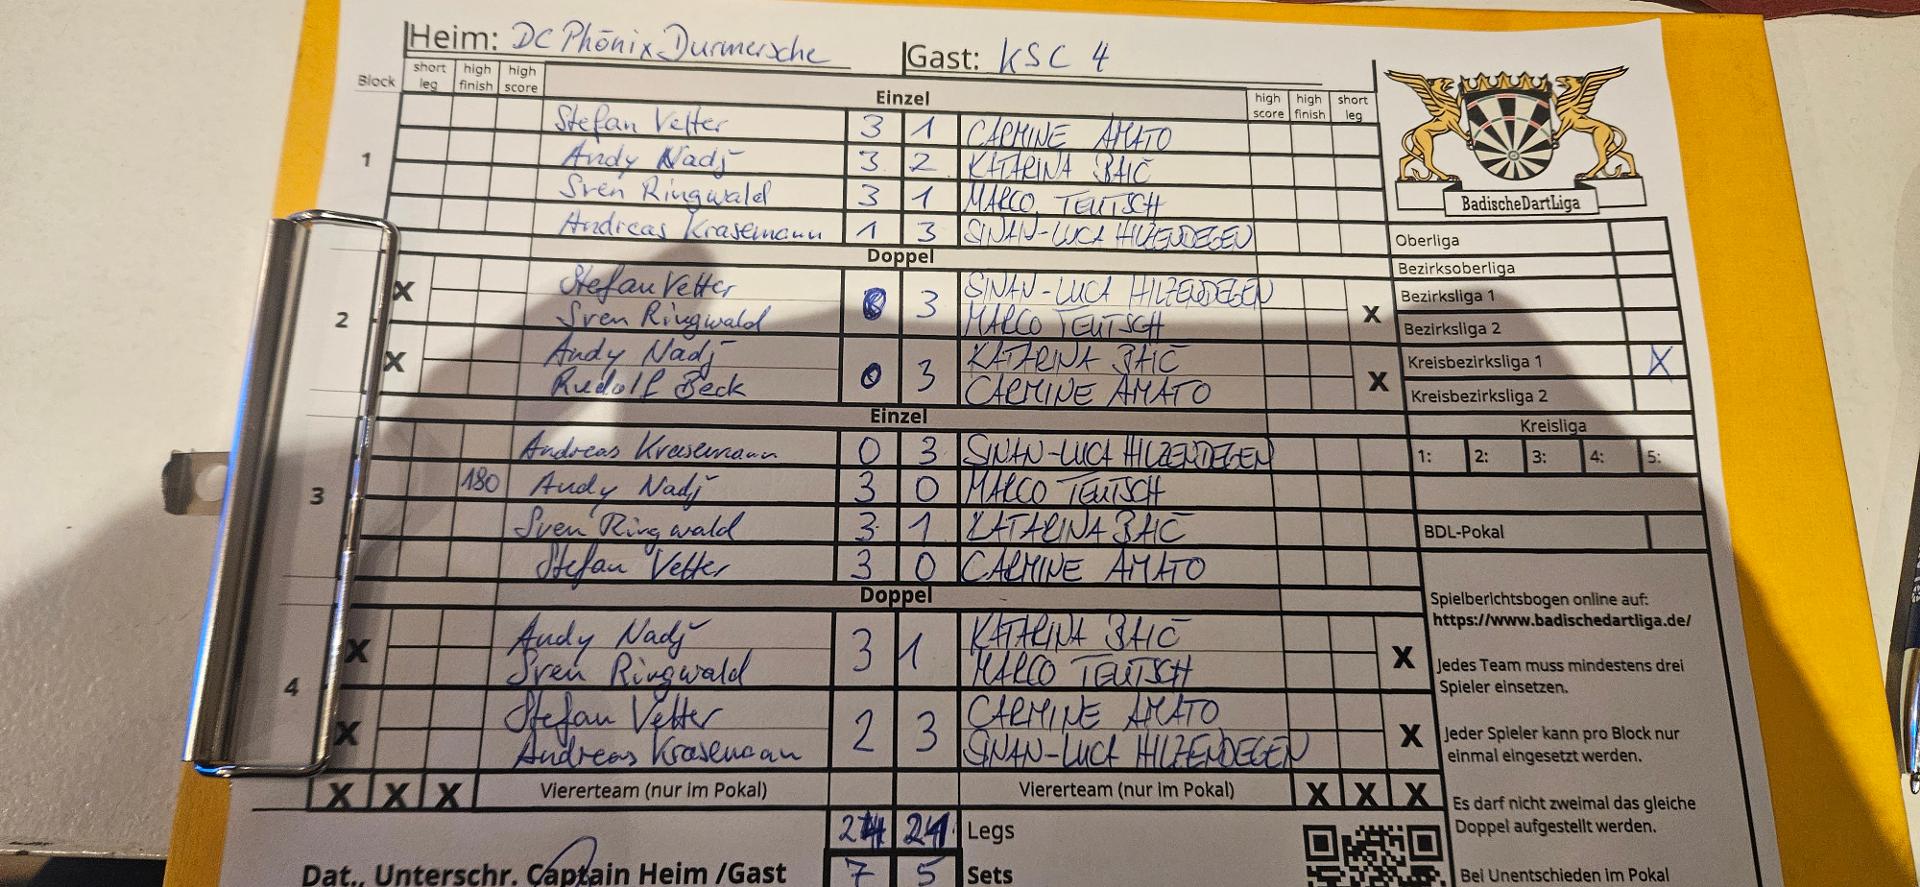 Heim: DC Phönix Durmersche Gast: KSC 4
Block short leg high finish high score Einzel high score high finish short leg
Stefan Vetter 3 1 CARMINE AMATO
1 Andy Nadj 3 2 KATARINA BAIĆ
Sven Ringwald 3 1 MARCO TEUTSCH
Andreas Krasemann 1 3 SINAN-LUCA HILZENDEGEN
Doppel
2 X Stefan Vetter 3 SINAN-LUCA HILZENDEGEN X
Sven Ringwald MARCO TEUTSCH
X Andy Nadj 0 3 KATARINA BAIĆ X
Rudolf Beck CARMINE AMATO
Einzel
Andreas Krasemann 0 3 SINAN-LUCA HILZENDEGEN
3 180 Andy Nadj 3 0 MARCO TEUTSCH
Sven Ringwald 3 1 KATARINA BAIĆ
Stefan Vetter 3 0 CARMINE AMATO
Doppel
4 X Andy Nadj 3 1 KATARINA BAIĆ X
Sven Ringwald MARCO TEUTSCH
X Stefan Vetter 2 3 CARMINE AMATO X
Andreas Krasemann SINAN-LUCA HILZENDEGEN
X X X Viererteam (nur im Pokal) Viererteam (nur im Pokal) X X X
Legs
Dat., Unterschr. Captain Heim /Gast 7 5 Sets
BadischeDartLiga
Oberliga
Bezirksoberliga
Bezirksliga 1
Bezirksliga 2
Kreisbezirksliga 1 X
Kreisbezirksliga 2
Kreisliga
1: 2: 3: 4: 5:
BDL-Pokal
Spielberichtsbogen online auf:
https://www.badischedartliga.de/
Jedes Team muss mindestens drei
Spieler einsetzen.
Jeder Spieler kann pro Block nur
einmal eingesetzt werden.
Es darf nicht zweimal das gleiche
Doppel aufgestellt werden.
Bei Unentschieden im Pokal